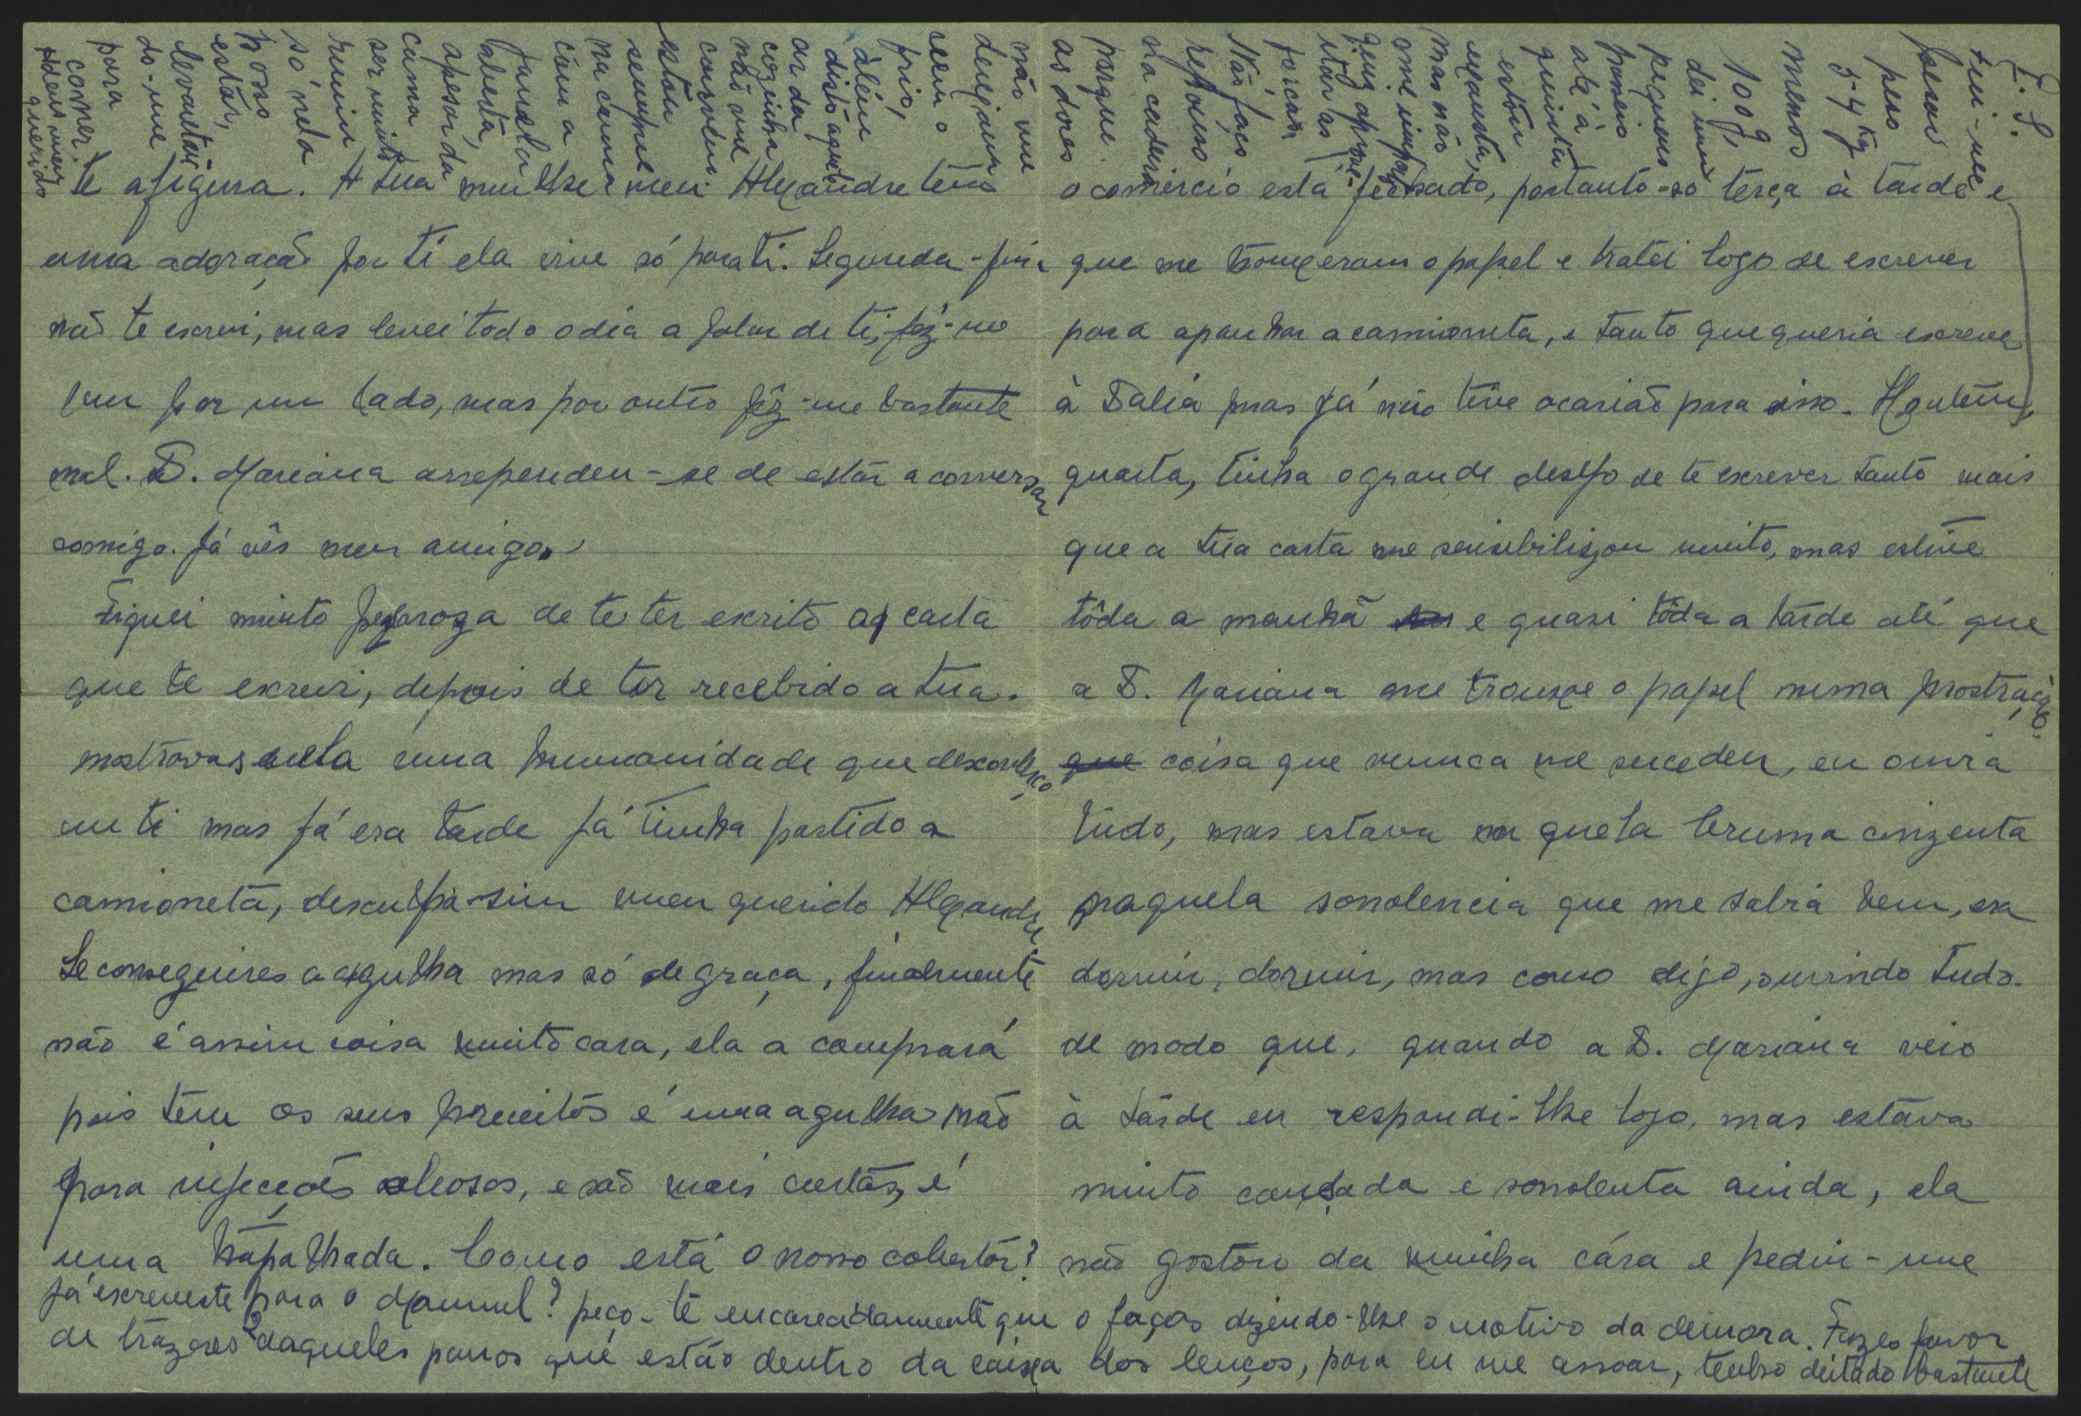 te afigura. A tua mulher meu Alexandre tem
uma adoração por ti ela vive só para ti. Segunda-feira
não te escrevi, mas levei todo o dia a falar de ti, fêz-me
bem por um lado, mas por outro fêz-me bastante
mal. D. Mariana arrependeu-se de estar a conversar
comigo. Já vês meu amigo.
Fiquei muito pesarosa de te ter escrito a carta
que te escrevi, depois de ter recebido a tua.
mostravas nela uma humanidade que desconheço
em ti mas já era tarde já tinha partido a
camioneta, desculpa sim meu querido Alexandre
Se conseguires a agulha mas só de graça, finalmente
não é assim coisa muito cara, ela a comprará
pois tem os seus proveitos é uma agulha não
para injecções oleosas, e são mais curtas, é
uma trapalhada. Como está o nosso cobertor?
o comércio está fechado, portanto só terça à tarde é
que me trouxeram o papel e tratei logo de escrever
para apanhar a camioneta, e tanto que queria escrever
à Dália mas já não tive ocasião para isso. Hontem,
quarta, tinha o grande desejo de te escrever tanto mais
que a tua carta me sensibilizou muito, mas estive
tôda a manhã e quasi tôda a tarde até que
a D. Mariana me trouxe o papel numa prostração.
que coisa que nunca me sucedeu, eu ouvia
tudo, mas estava naquela bruma cinzenta
naquela sonolencia que me sabia bem, era
dormir, dormir, mas como digo, ouvindo tudo.
de modo que, quando a D. Mariana veio
à tarde eu respondi-lhe logo, mas estava
muito cansada e sonolenta ainda, ela
não gostou da minha cára e pediu-me
já escreveste para o Manuel? peço-te encarecidamente que o faças dizendo-lhe o motivo da demora. Fazes favor
de trazeres daqueles panos que estão dentro da caixa dos lenços, para eu me assoar, tenho deitado bastante
P.S.
Fui-me
pesar
peso
54 kg
menos
100g,
dei um
pequeno
passeio
até à
quinta
estou
exausta,
mas não
me importa
quiz aprove-
itar as
forças
Não faço
repouso
na cadeira
porque
as dores
não me
deixam
nem o
frio,
além
disto aquele
ar da
cozinha
não me
convém
sempre
estou
na cama
com a
janela
aberta
apesar da
cama
ser muito
ruim
só nela
posso
estar,
levantan
do-me
para
comer.
Adeus meu
querido